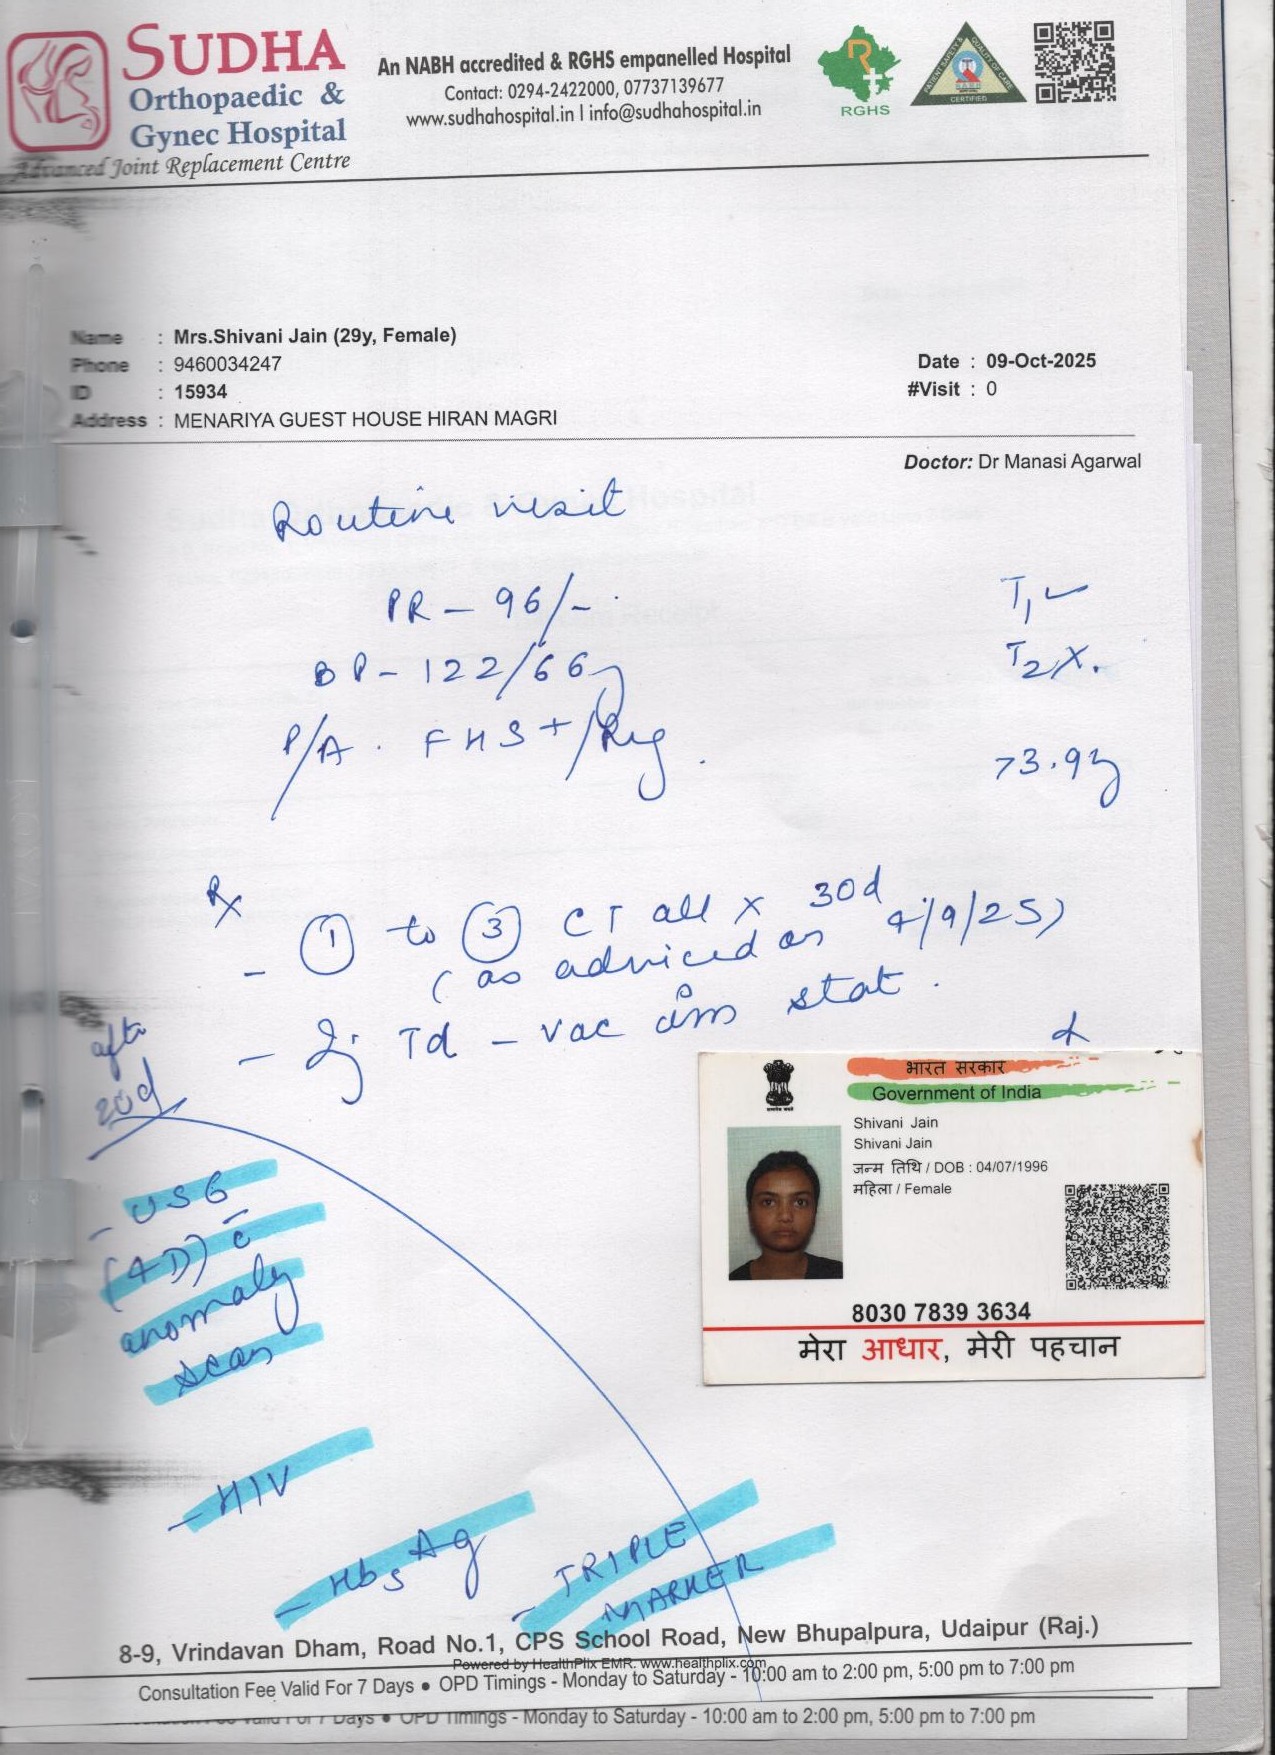 SUDHA
Orthopaedic &
Gynec Hospital
Advanced Joint Replacement Centre
An NABH accredited & RGHS empanelled Hospital
Contact: 0294-2422000, 07737139677
www.sudhahospital.in | info@sudhahospital.in
RGHS
CERTIFIED
Name : Mrs.Shivani Jain (29y, Female)
Phone : 9460034247
ID : 15934
Address : MENARIYA GUEST HOUSE HIRAN MAGRI
Date : 09-Oct-2025
#Visit : 0
Doctor: Dr Manasi Agarwal
Routine visit
PR - 96/-.
T1 ✓
BP - 122/66
T2 X.
P/A . FHS +/Reg.
73.9
Rx
- ① to ③ CT all x 30d
(as adviced on 4/9/25)
- Inj Td - vac im stat.
after
20d
- USG
(4D) c̄
anomaly
scan
- HIV
- HbsAg
- TRIPLE
MARKER
भारत सरकार
Government of India
Shivani Jain
Shivani Jain
जन्म तिथि / DOB : 04/07/1996
महिला / Female
8030 7839 3634
मेरा आधार, मेरी पहचान
8-9, Vrindavan Dham, Road No.1, CPS School Road, New Bhupalpura, Udaipur (Raj.)
Powered by HealthPlix EMR. www.healthplix.com
Consultation Fee Valid For 7 Days ● OPD Timings - Monday to Saturday - 10:00 am to 2:00 pm, 5:00 pm to 7:00 pm
Valid For 7 Days ● OPD Timings - Monday to Saturday - 10:00 am to 2:00 pm, 5:00 pm to 7:00 pm